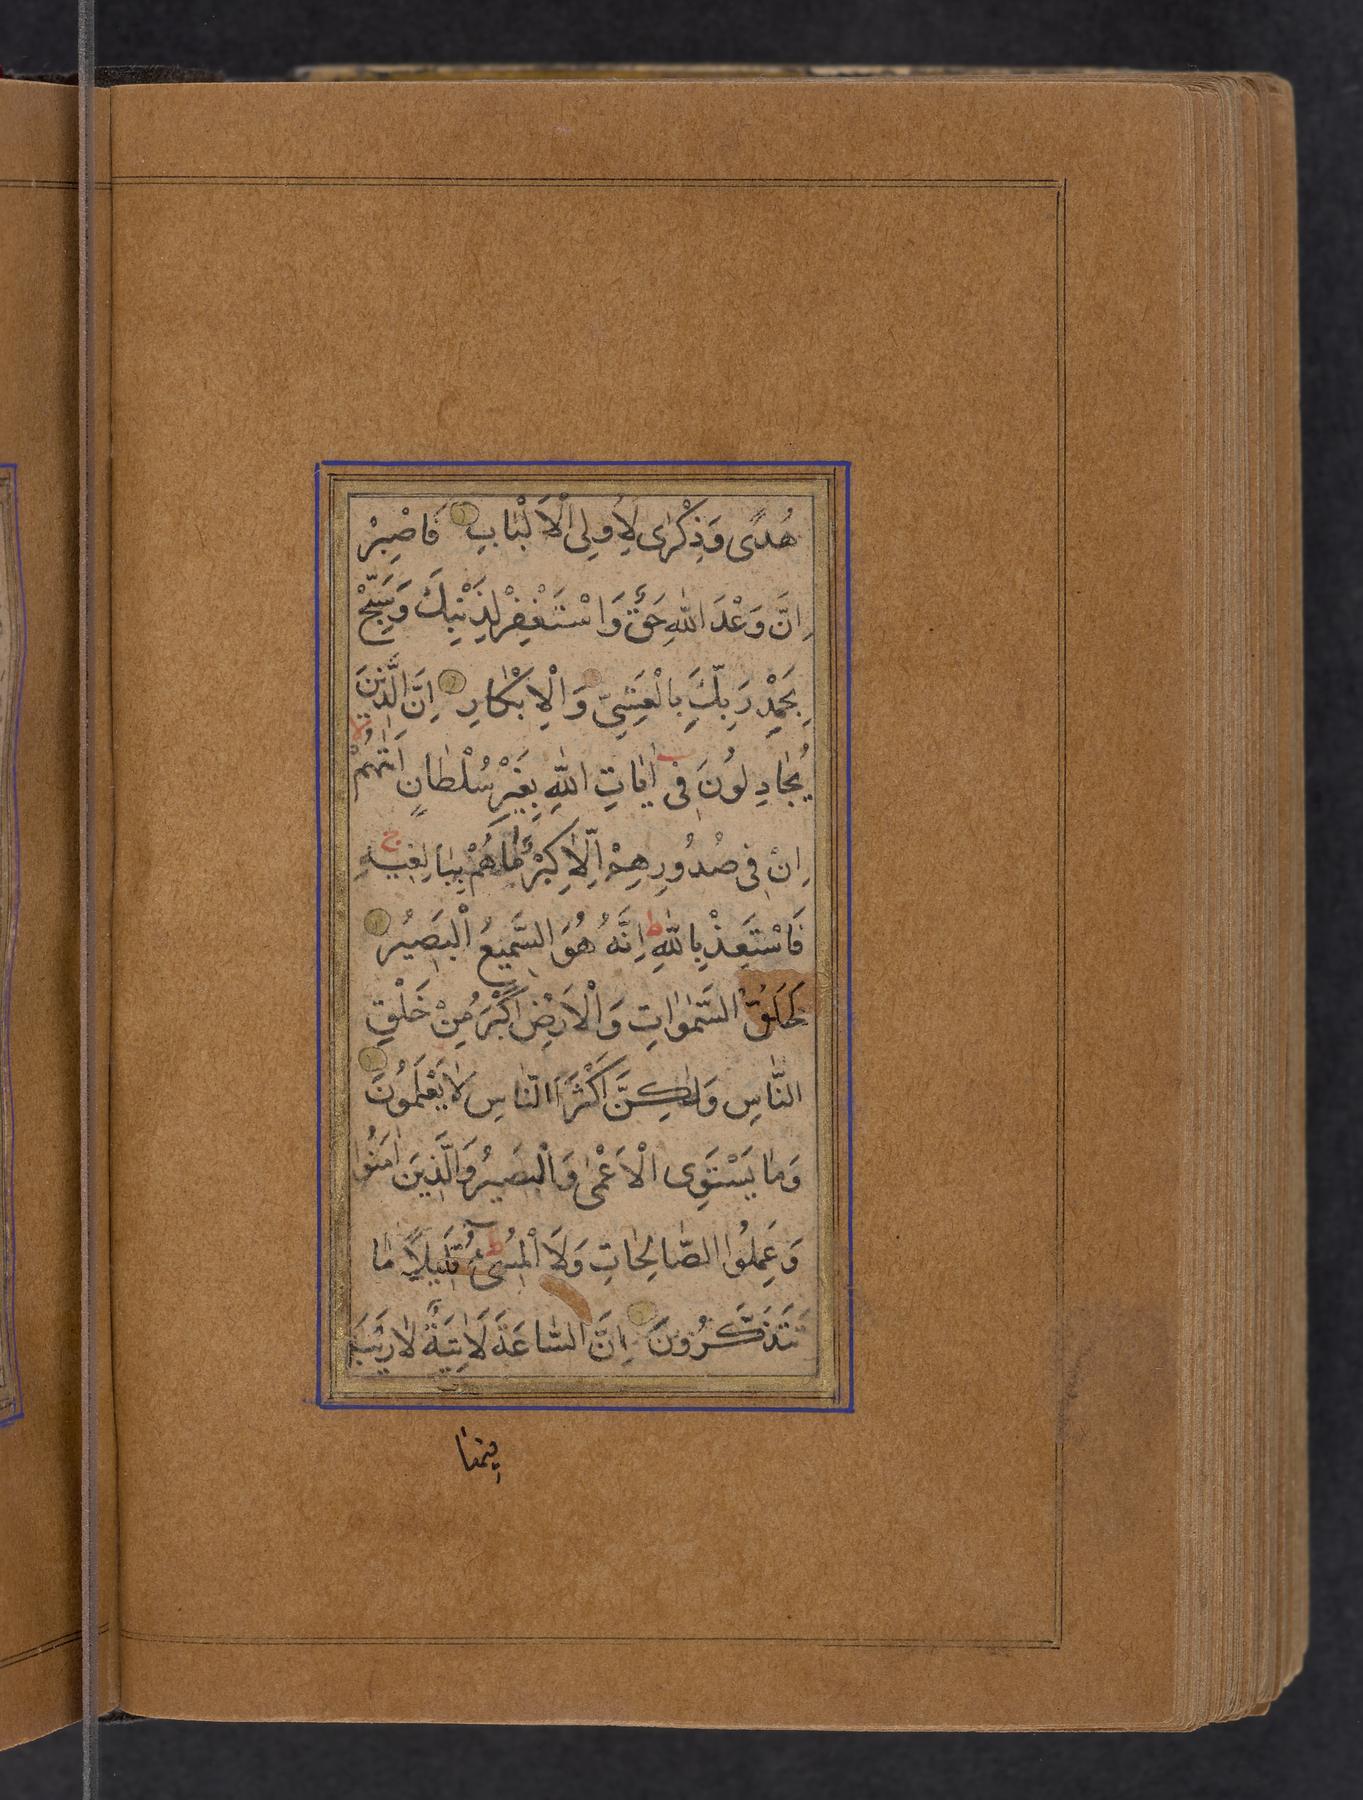 هُدًى وَذِكْرٰى لِاُولِى الْاَلْبَابِ فَاصْبِرْ
اِنَّ وَعْدَ اللّٰهِ حَقٌّ وَاسْتَغْفِرْ لِذَنْبِكَ وَسَبِّحْ
بِحَمْدِ رَبِّكَ بِالْعَشِىِّ وَالْاِبْكَارِ اِنَّ الَّذِينَ
يُجَادِلُونَ فِى اٰيَاتِ اللّٰهِ بِغَيْرِ سُلْطَانٍ اَتٰيهُمْ لا
اِنْ فِى صُدُورِهِمْ اِلَّا كِبْرٌ مَا هُمْ بِبَالِغِيهِ ج
فَاسْتَعِذْ بِاللّٰهِ ط اِنَّهُ هُوَ السَّمِيعُ الْبَصِيرُ
لَخَلْقُ السَّمٰوَاتِ وَالْاَرْضِ اَكْبَرُ مِنْ خَلْقِ
النَّاسِ وَلٰكِنَّ اَكْثَرَ النَّاسِ لَا يَعْلَمُونَ
وَمَا يَسْتَوِى الْاَعْمٰى وَالْبَصِيرُ وَالَّذِينَ اٰمَنُوا
وَعَمِلُوا الصَّالِحَاتِ وَلَا الْمُسِىءُ ط قَلِيلًا مَا
تَتَذَكَّرُونَ اِنَّ السَّاعَةَ لَاٰتِيَةٌ لَا رَيْبَ